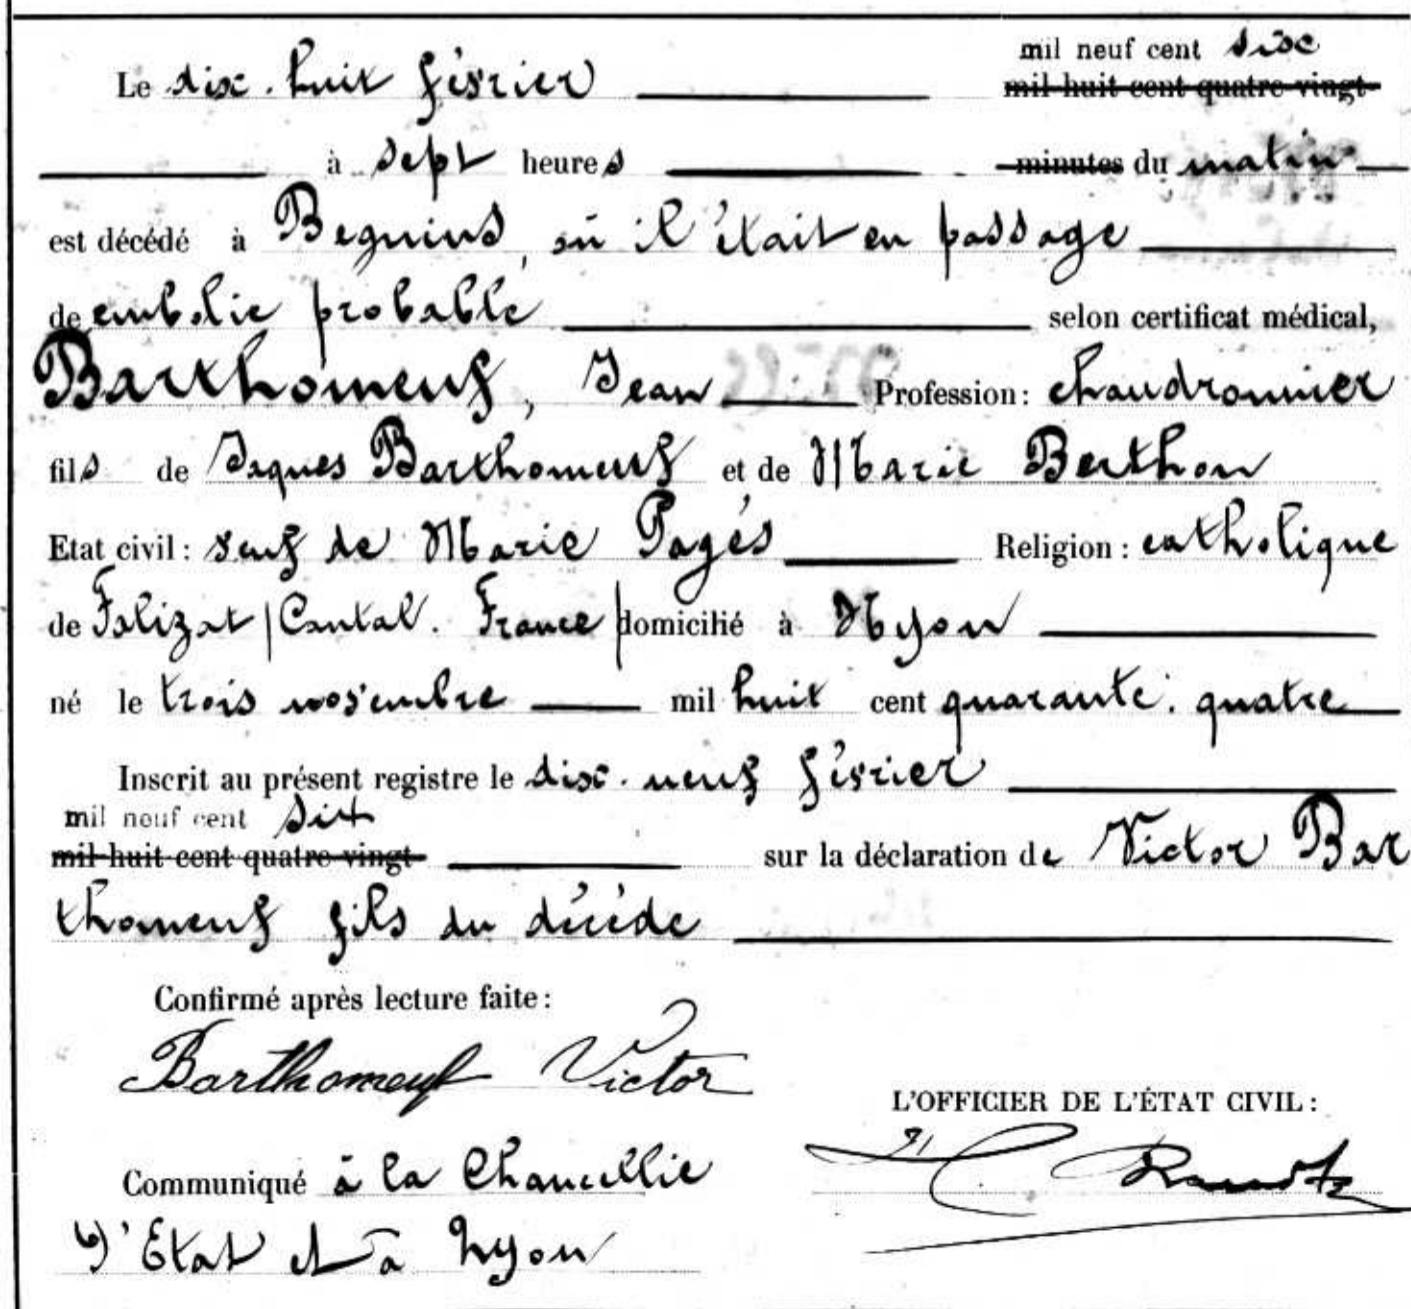 mil neuf cent six
Le dix-huit février mil huit cent quatre-vingt
à sept heures minutes du matin
est décédé à Begnins, où il était en passage
de embolie probable selon certificat médical,
Barthomeuf, Jean Profession: chaudronnier
fils de Jaques Barthomeuf et de Marie Berthon
Etat civil: veuf de Marie Pagés Religion: catholique
de Falizat (Cantal. France) domicilié à Nyon
né le trois novembre mil huit cent quarante-quatre
Inscrit au présent registre le dix-neuf février
mil neuf cent six
mil huit cent quatre-vingt sur la déclaration de Victor Bar
thomeuf fils du décédé
Confirmé après lecture faite:
Barthomeuf Victor
L'OFFICIER DE L'ÉTAT CIVIL:
Communiqué à la Chancellie
d'Etat et à Nyon